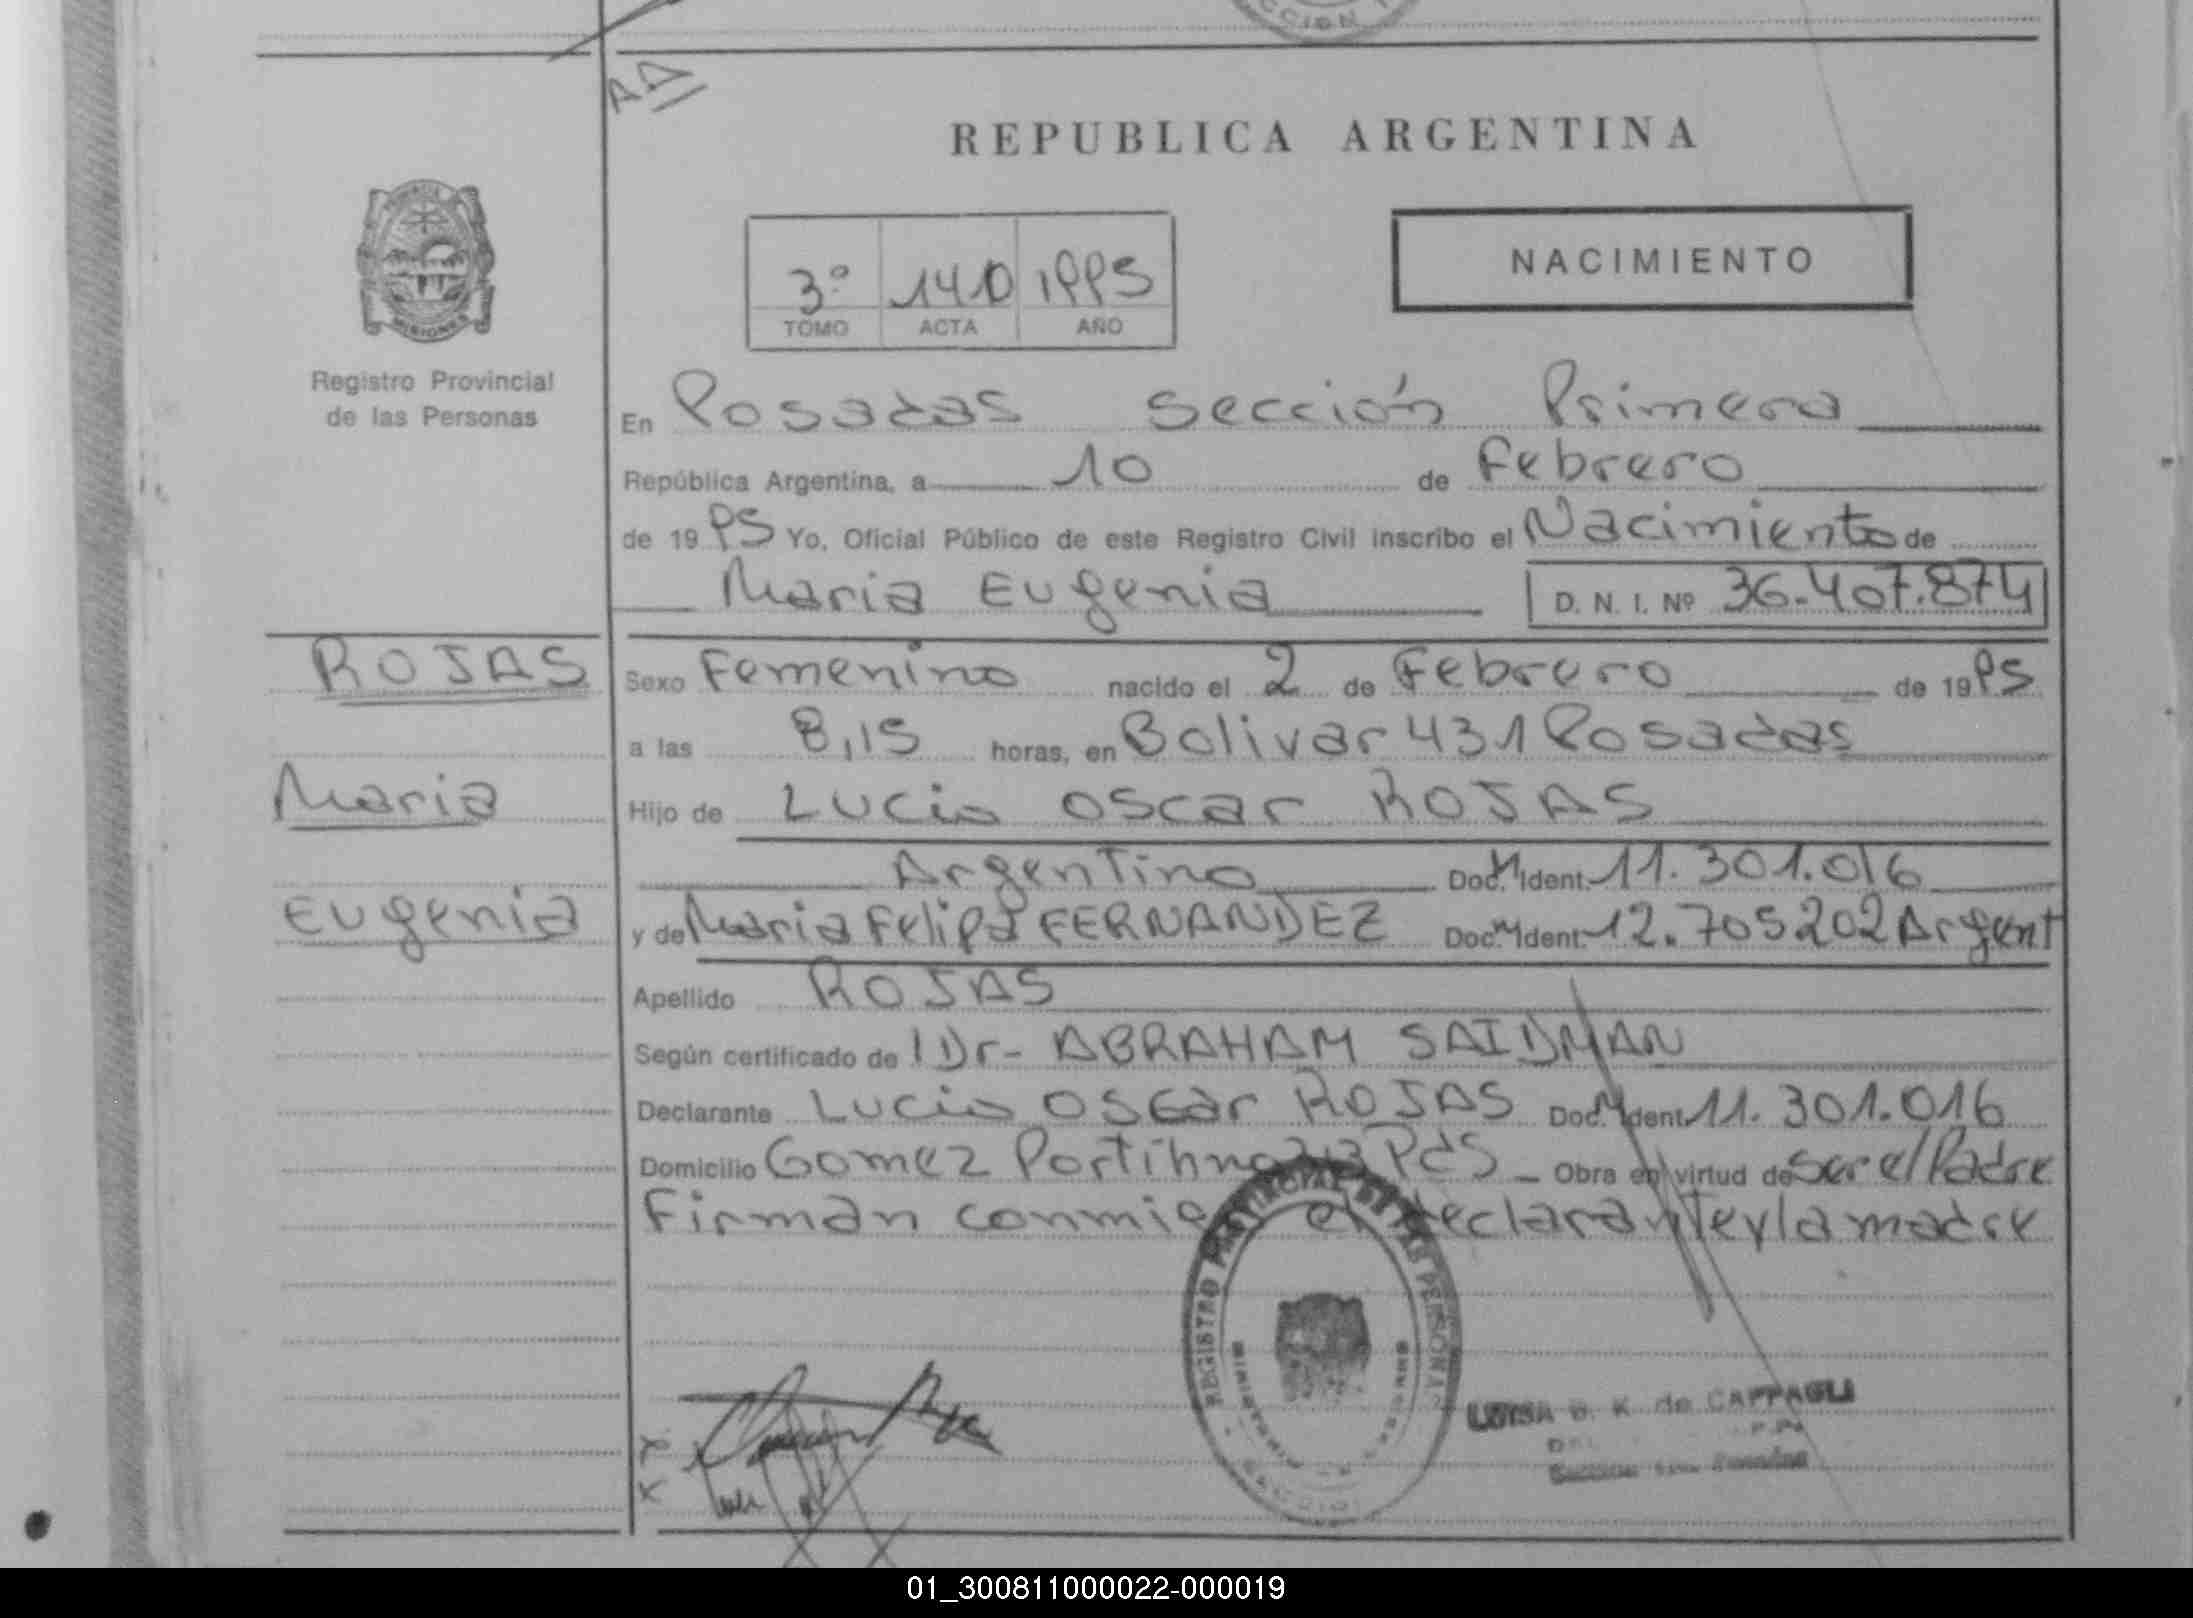 CCION
AD
REPUBLICA ARGENTINA
MISIONES
3º 140 1995
TOMO ACTA AÑO
NACIMIENTO
Registro Provincial
de las Personas
En Posadas Sección Primera
República Argentina, a 10 de Febrero
de 1995 Yo, Oficial Público de este Registro Civil inscribo el Nacimiento de
Maria Eugenia D. N. I. Nº 36.407.874
ROJAS
Maria
Eugenia
Sexo Femenino nacido el 2 de Febrero de 1995
a las 8,15 horas, en Bolivar 431 Posadas
Hijo de Lucio Oscar ROJAS
Argentino Doc. Ident. 11.301.016
y de Maria Felipa FERNANDEZ Doc. Ident. 12.705202 Argent
Apellido ROJAS
Según certificado de l Dr- ABRAHAM SAIDMAN
Declarante Lucio Oscar ROJAS Doc. Ident. 11.301.016
Domicilio Gomez Portihno Pds Obra en virtud de ser el Padre
Firman conmigo el declarante y la madre
REGISTRO PROVINCIAL DE LAS PERSONAS
LUISA B. K. de CAPPAGLI
01_300811000022-000019